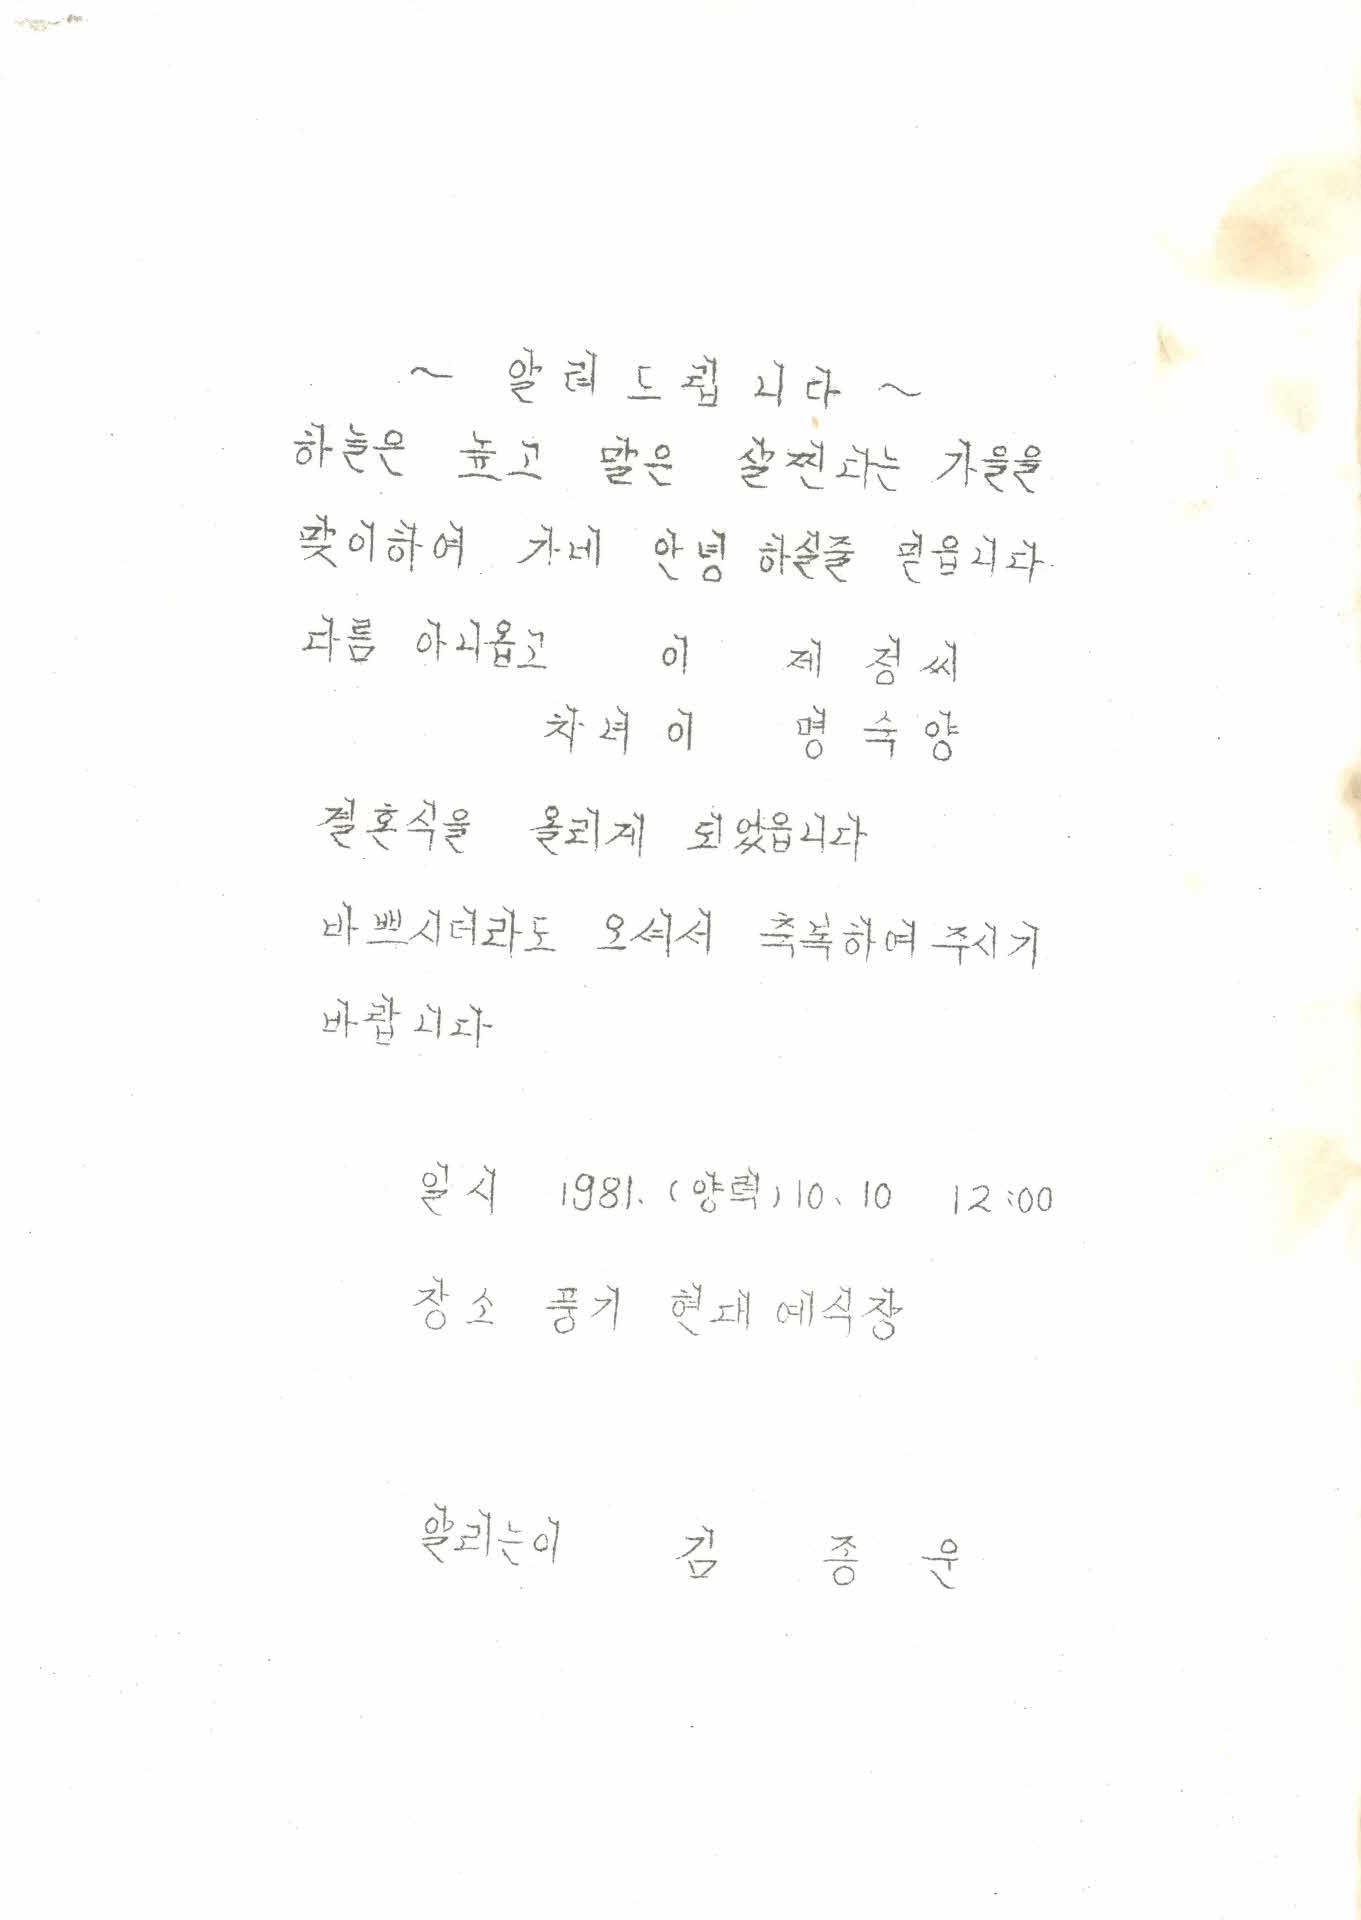 ~ 알려드립니다 ~
하늘은 높고 말은 살찐다는 가을을
맞이하여 가네 안녕 하실줄 믿읍니다
다름 아니옵고 이 제 정씨
차녀 이 명 숙 양
결혼식을 올리게 되었읍니다
바쁘시더라도 오셔서 축복하여 주시기
바랍니다
일시 1981. (양력) 10. 10 12:00
장소 풍기 현대 예식장
알리는이 김 종 운